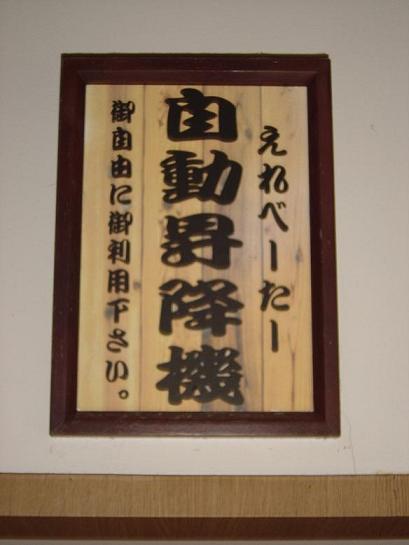 えれべーたー
自動昇降機
御自由に御利用下さい。